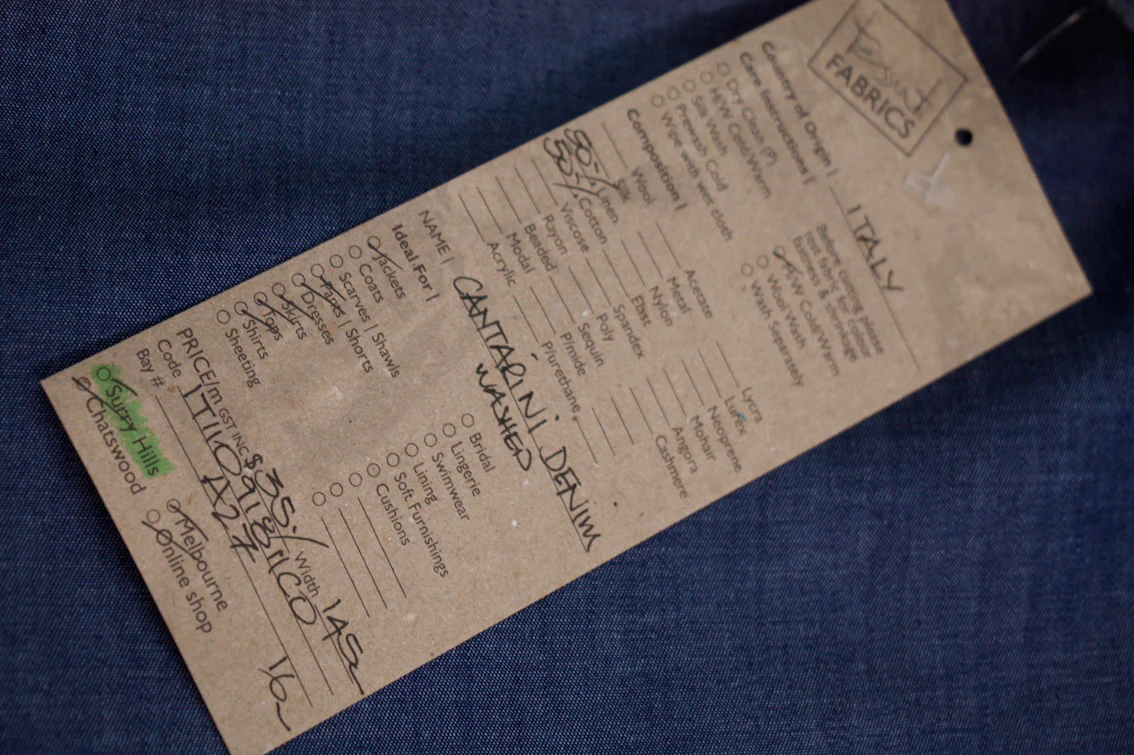 Tessuti
FABRICS
Country of Origin | ITALY
Care Instructions |
Dry Clean (P)
H/W Cold/Warm
Silk Wash
Prewash Cold
Wipe with wet cloth
Before cutting please
test fabric for colour
fastness & shrinkage
H/W Cold/Warm
Wool Wash
Wash Separately
Composition |
Wool
Silk
50% Linen
50% Cotton
Viscose
Rayon
Beaded
Modal
Acrylic
Acetate
Metal
Nylon
Elast
Spandex
Poly
Sequin
P/mide
P/urethane
Lycra
Lurex
Neoprene
Mohair
Angora
Cashmere
NAME | CANTARINI DENIM
WASHED
Ideal For |
Jackets
Coats
Scarves | Shawls
Pants | Shorts
Dresses
Skirts
Tops
Shirts
Sheeting
Bridal
Lingerie
Swimwear
Lining
Soft Furnishings
Cushions
PRICE/m GST INC $35./ Width 145
Code
Bay # A27
Surry Hills
Chatswood
Melbourne
Online shop